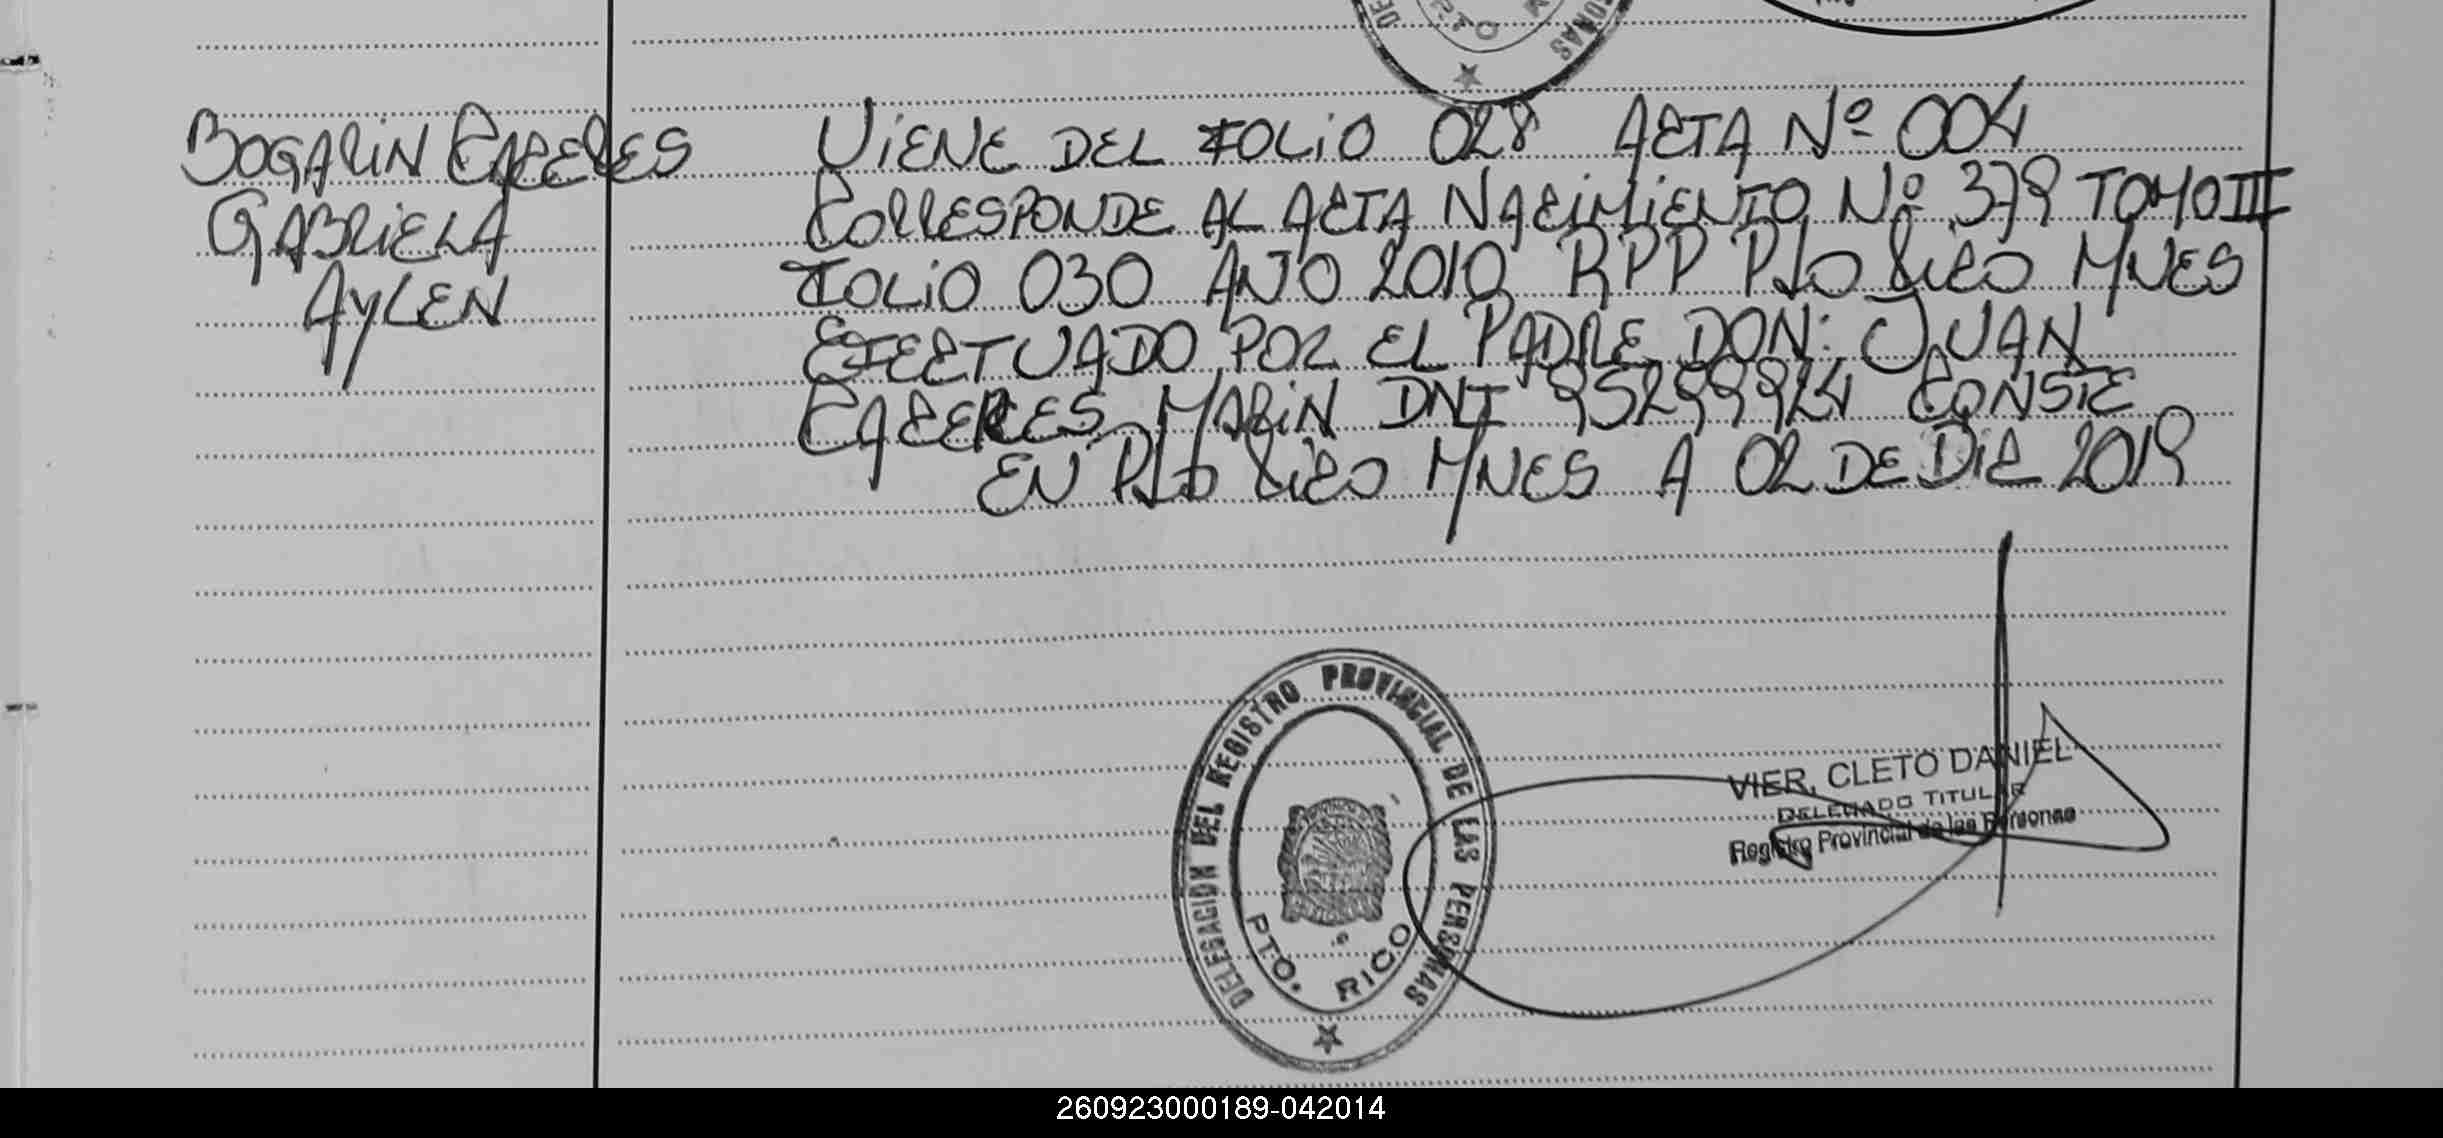 BOGARIN CACERES
GABRIELA
AYLEN
VIENE DEL FOLIO 028 ACTA Nº 004
CORRESPONDE AL ACTA NACIMIENTO Nº 379 TOMO III
FOLIO 030 AÑO 2010 RPP PTO RICO MNES
EFECTUADO POR EL PADRE DON: JUAN
CACERES MARIN DNI 95299924 CONSTE
EN PTO RICO MNES A 02 DE DIC 2019
DELEGACION DEL REGISTRO PROVINCIAL DE LAS PERSONAS
PTO. RICO
VIER, CLETO DANIEL
DELEGADO TITULAR
Registro Provincial de las Personas
260923000189-042014